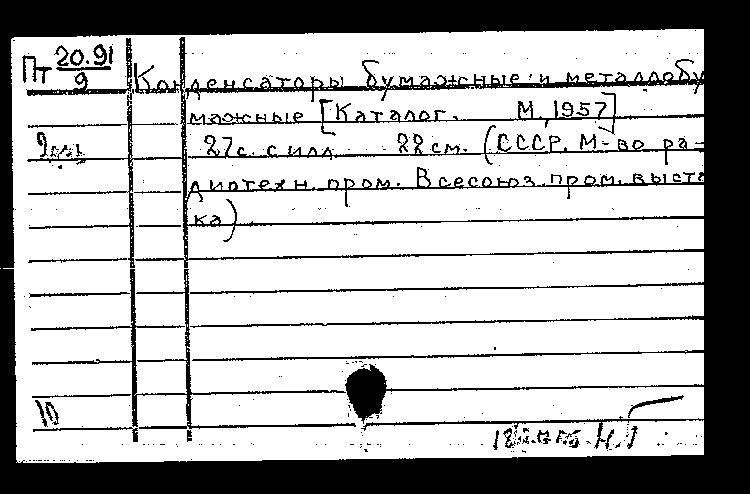 Пт 20.91
9
Конденсаторы бумажные и металлобу
мажные [Каталог. М, 1957]
27с. с илл 22 см. (СССР. М-во ра-
диотехн. пром. Всесоюз. пром. выста
ка).
10